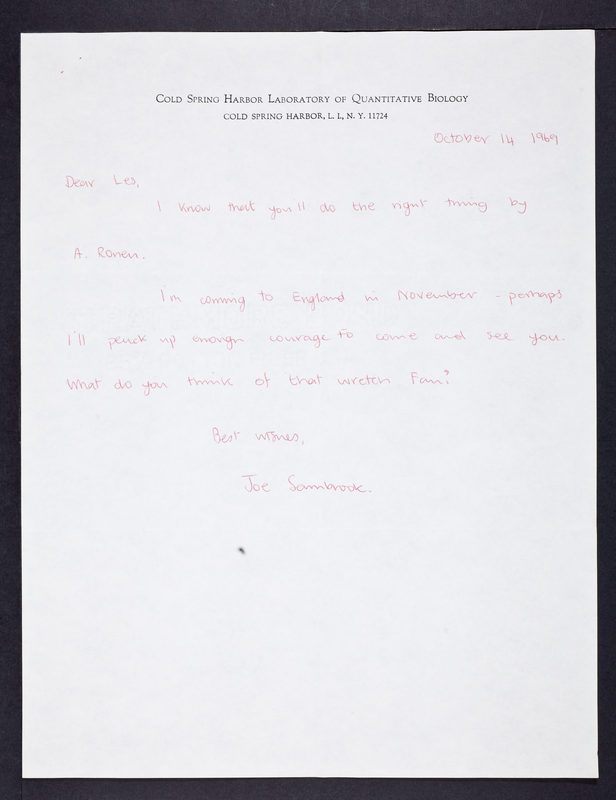 COLD SPRING HARBOR LABORATORY OF QUANTITATIVE BIOLOGY
COLD SPRING HARBOR, L. I., N. Y. 11724
October 14 1969
Dear Les,
I know that you'll do the right thing by
A. Ronen.
I'm coming to England in November - perhaps
I'll pluck up enough courage to come and see you.
What do you think of that wretch Fan?
Best wishes,
Joe Sambrook.